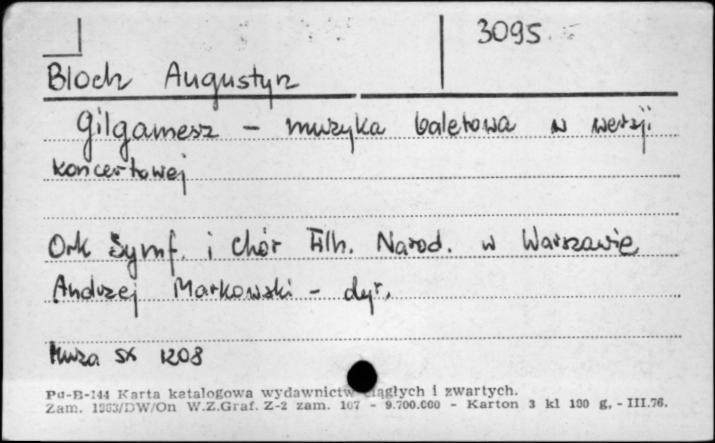 3095
Bloch Augustyn
Gilgamesz – muzyka baletowa w wersji
koncertowej
Ork Symf. i Chór Filh. Narod. w Warszawie
Andrzej Markowski – dyr.
Muza SX 1208
Pu-B-144 Karta katalogowa wydawnictw ciągłych i zwartych.
Zam. 1963/DW/On W.Z.Graf. Z-2 zam. 107 - 9.700.000 - Karton 3 kl 180 g. - III.76.